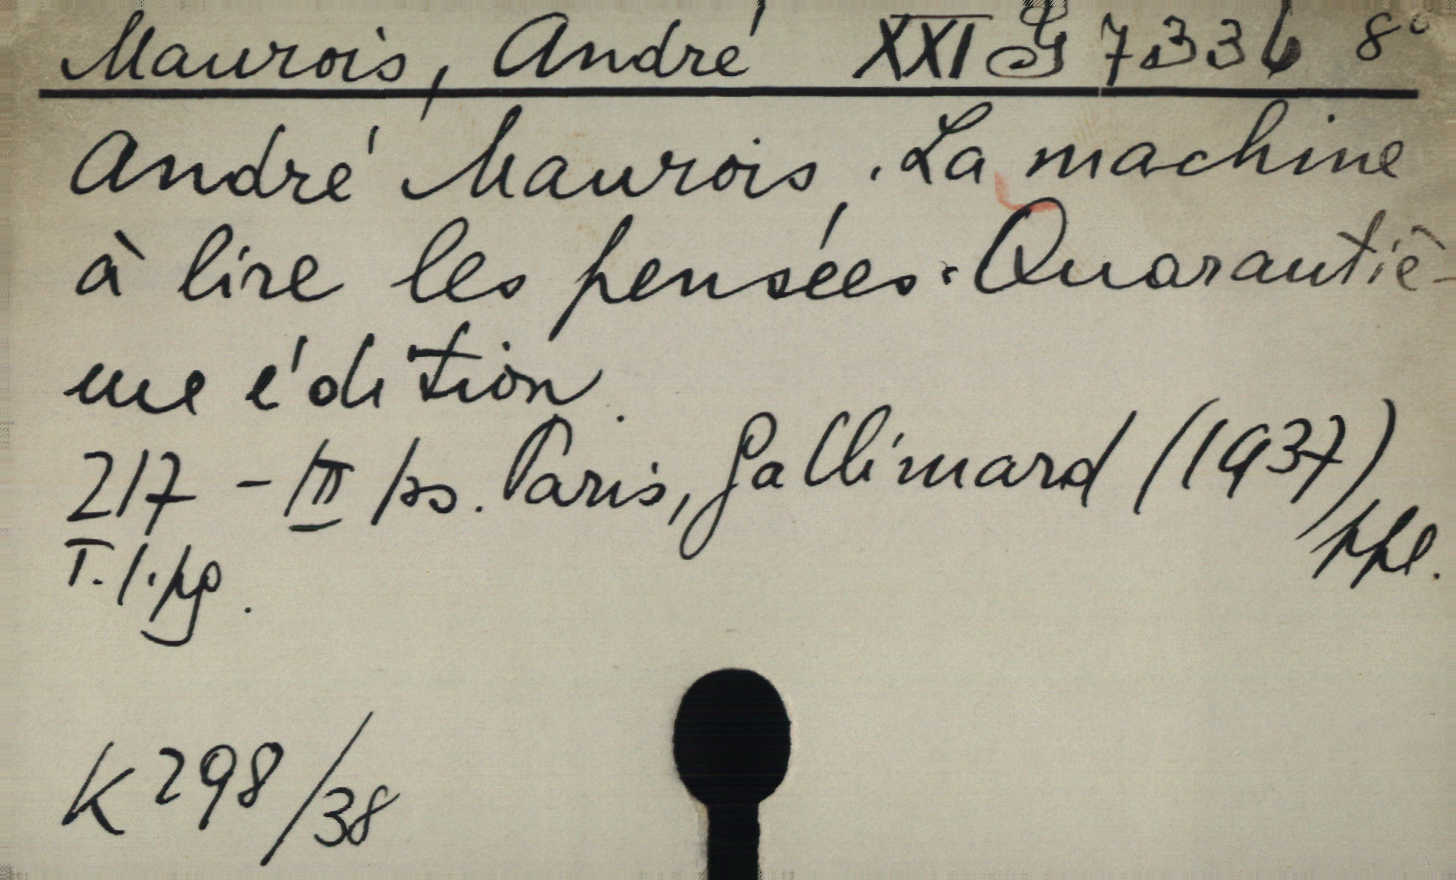 Maurois, André XXI G 7336 8°
André Maurois. La machine
à lire les pensées. Quarantiè-
me édition.
217 - III ps. Paris, Gallimard (1937)
T. l. pg. ppl.
K 298/38